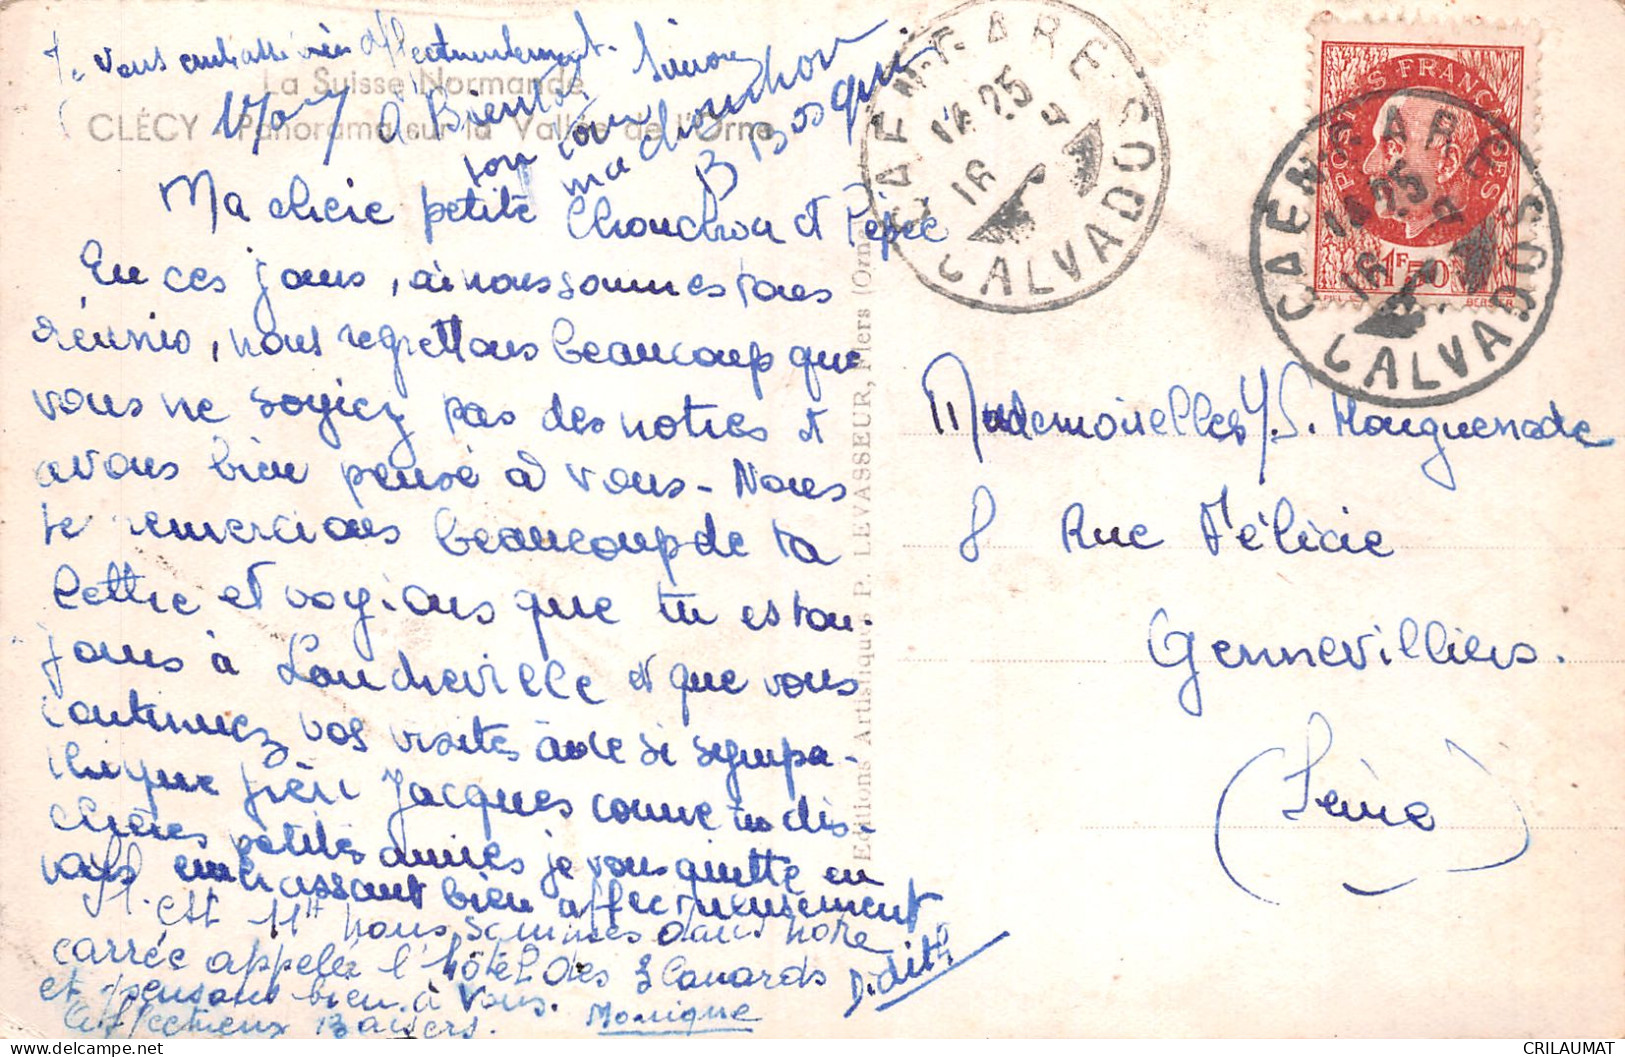 Je vous embrasse très affectueusement. Simone
La Suisse Normande
CLÉCY - Panorama sur la Vallée de l'Orne
à Bientôt
ton
ma chouchou
Ma chère petite Chouchou et Pépée
En ces jours, où nous sommes tous
réunis, nous regrettons beaucoup que
vous ne soyiez pas des notres et
avons bien pensé à vous - Nous
te remercions beaucoup de ta
lettre et voyions que tu es tou-
jours à et que vous
continuez vos visites à ce si sympa-
thique frère Jacques comme tu dis.
chères petites amies je vous quitte en
vous embrassant bien affectueusement
Il est 11H nous sommes dans notre
carrée appelée l'hôtel des 3 Canards Edith
et pensons bien à vous.
Affectueux Baisers. Monique
Editions Artistiques P. LEVASSEUR, Flers (Orne)
CAEN-GARE
14 25
16
CALVADOS
POSTES FRANÇAISES
1F50
BERSIER
CAEN-GARE
14 25
16
CALVADOS
Mademoiselles Y.S. Houguenade
8 Rue Félicie
Gennevilliers.
(Seine)
CRILAUMAT